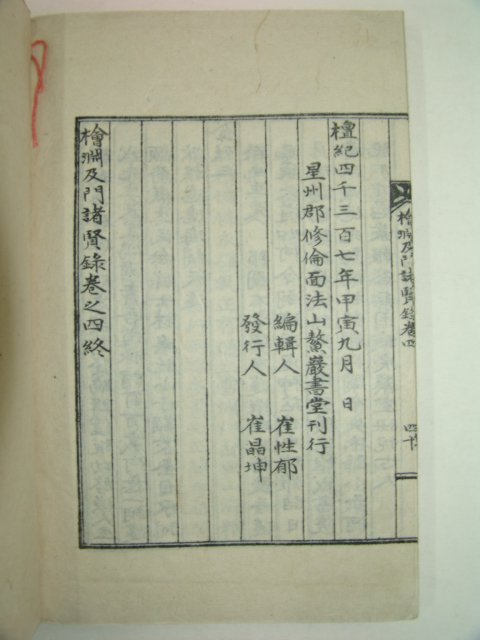 檀紀四千三百七年甲寅九月　日
星州郡修倫面法山鰲巖書堂刊行
編輯人　崔性郁
發行人　崔晶坤
檜淵及門諸賢錄卷之四終
檜淵及門諸賢錄卷四